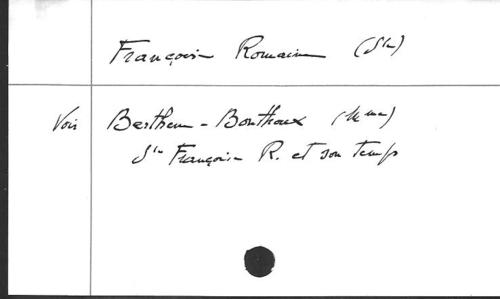 Françoise Romaine (Ste)
Voir Berthem-Bontoux (Mme)
Ste Françoise R. et son temps